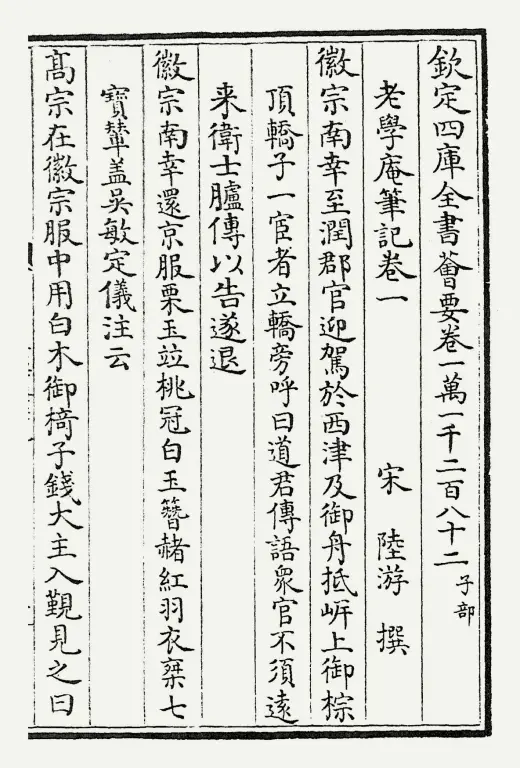 欽定四庫全書薈要卷一萬一千二百八十二子部
老學庵筆記卷一 宋 陸游 撰
徽宗南幸至潤郡官迎駕於西津及御舟抵岍上御棕
頂轎子一宦者立轎旁呼曰道君傳語衆官不須遠
来衛士臚傳以告遂退
徽宗南幸還京服栗玉竝桃冠白玉簪赭紅羽衣乗七
寶輦盖吳敏定儀注云
髙宗在徽宗服中用白木御椅子錢大主入覲見之曰